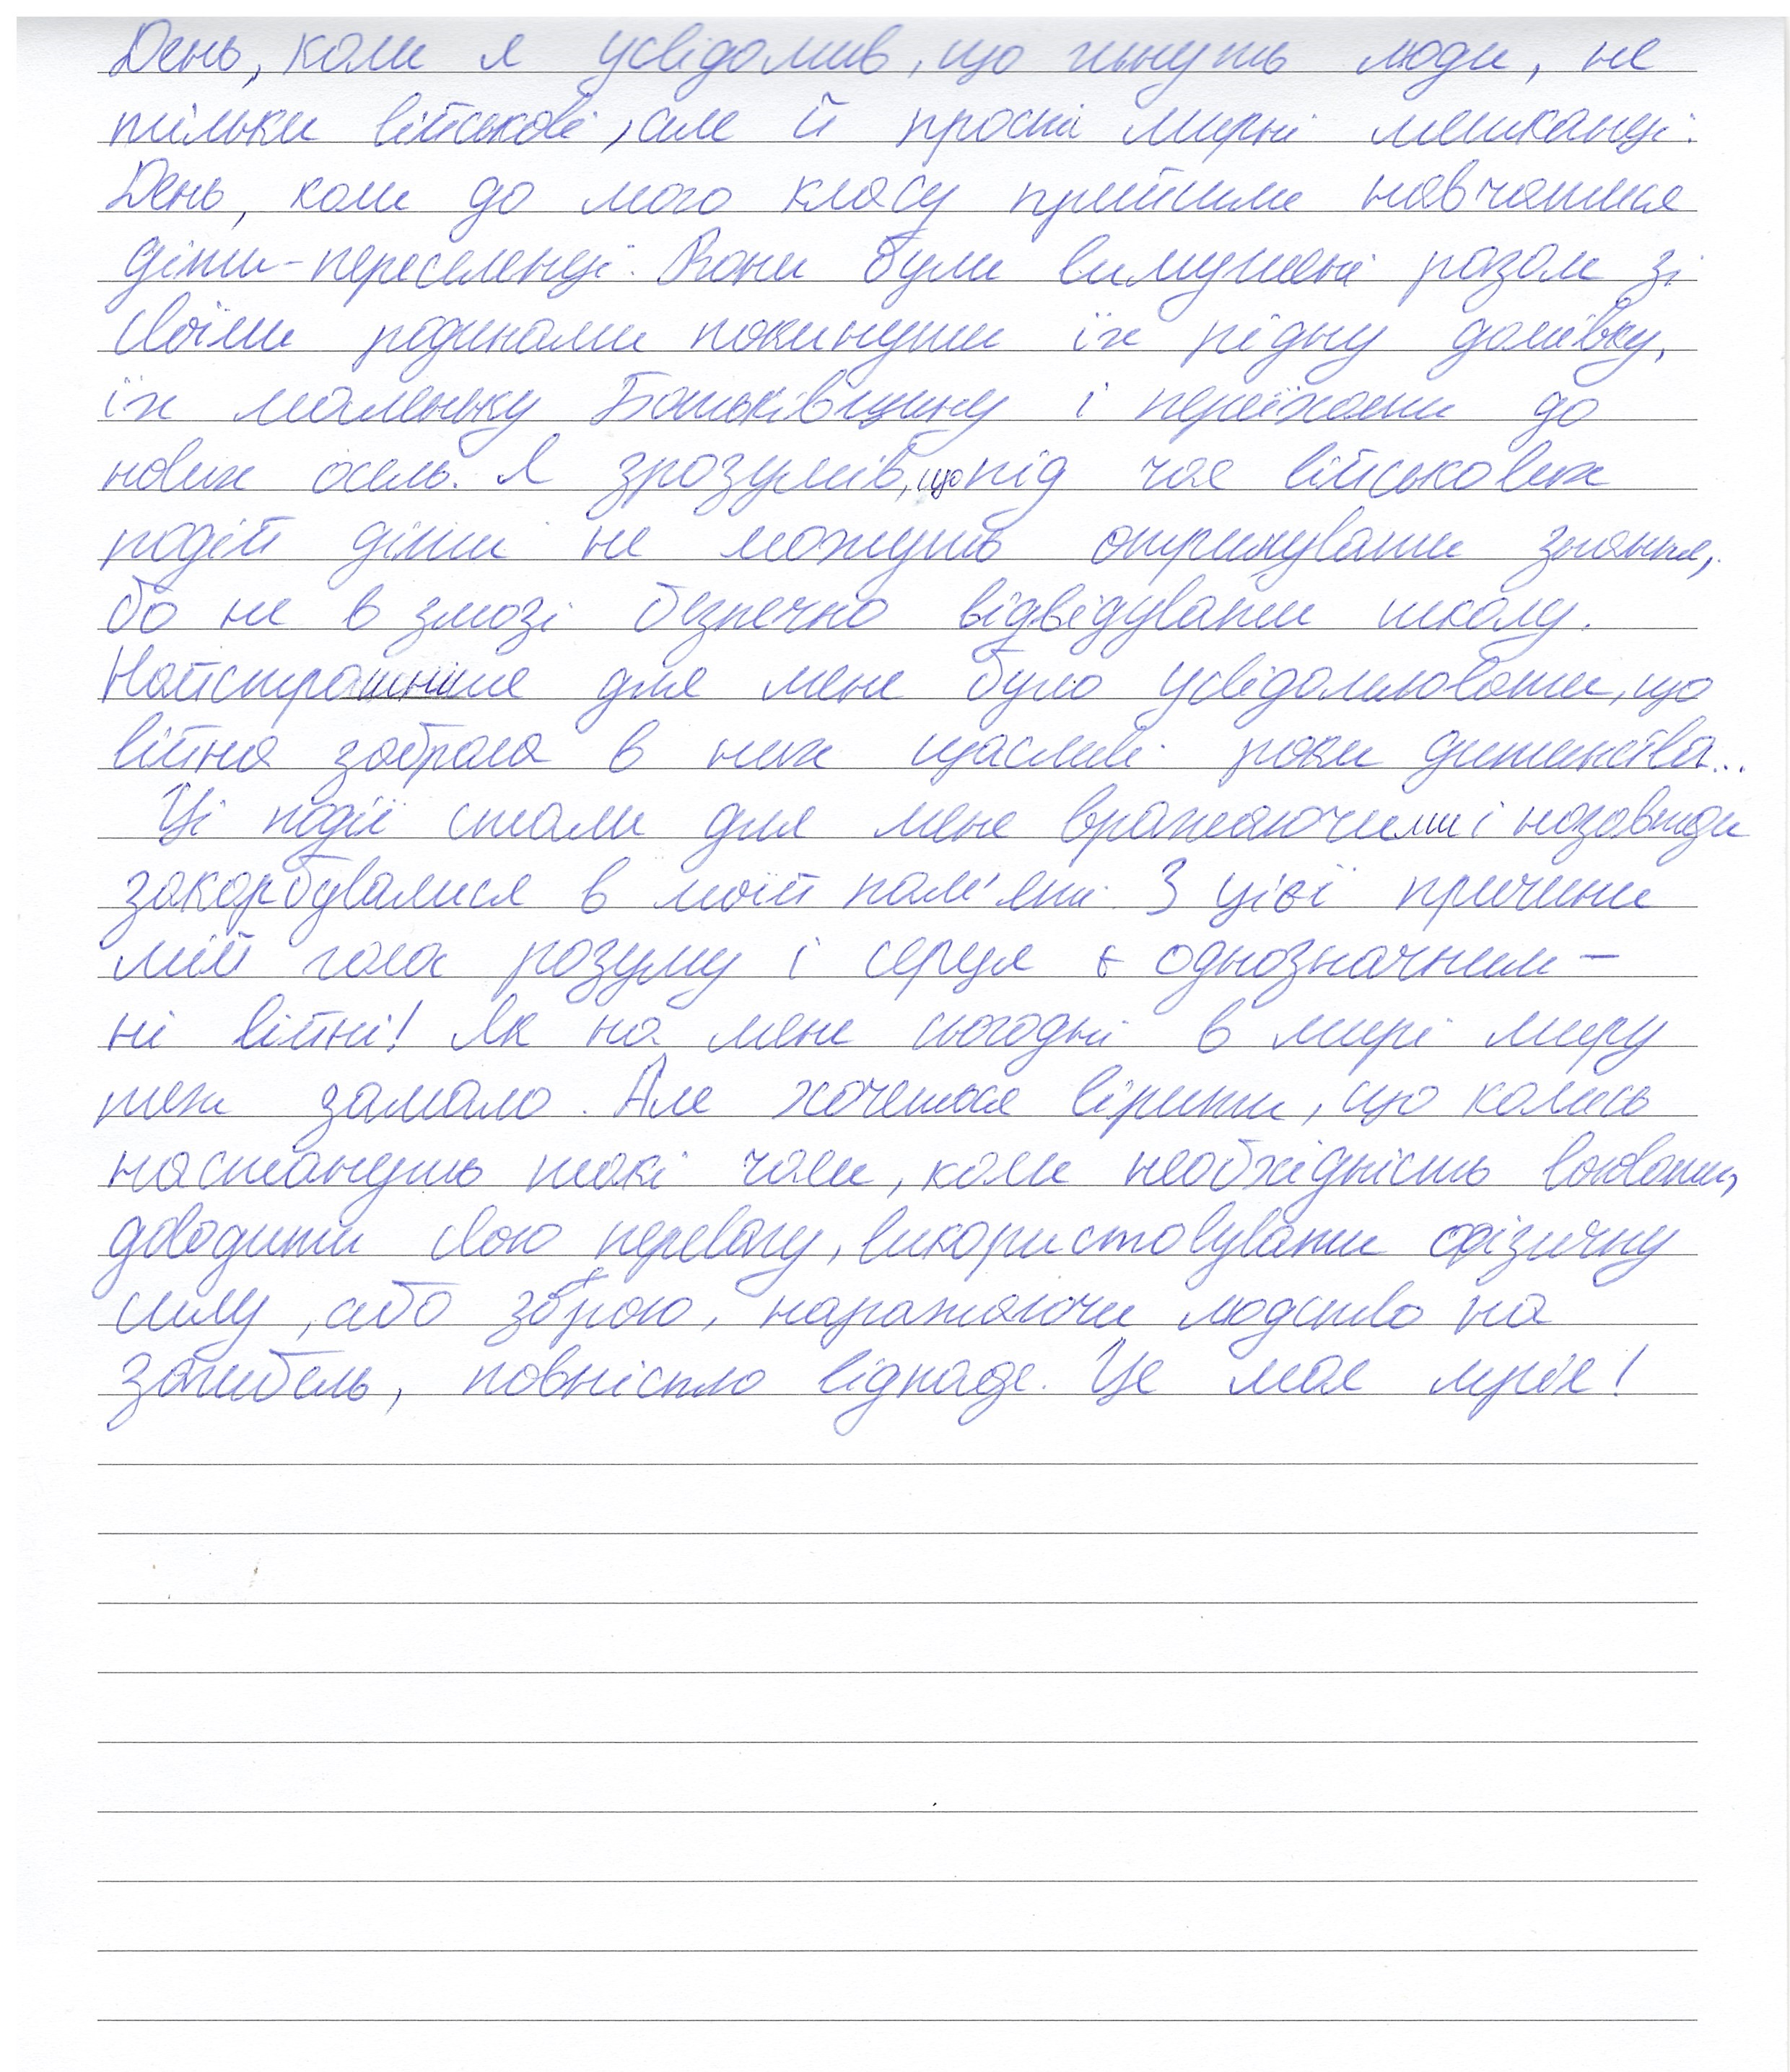 День, коли я усвідомив, що гинуть люди, не
тільки військові, але й прості мирні мешканці.
День, коли до мого класу прийшли навчатися
діти-переселенці. Вони були вимушені разом зі
своїми родинами покинути їх рідну домівку,
їх маленьку Батьківщину і переїхати до
нових осель. Я зрозумів, що під час військових
подій діти не можуть отримувати знання,
бо не в змозі безпечно відвідувати школу.
Найстрашніше для мене було усвідомлювати, що
війна забрала в них щасливі роки дитинства...
Ці події стали для мене вражаючими і назавжди
закарбувалися в моїй пам'яті. З цієї причини
мій голос розуму і серця є однозначним —
ні війні! Як на мене сьогодні в мирі миру
теж замало. Але хочеться вірити, що колись
настануть такі часи, коли необхідність воювати,
доводити свою перевагу, використовувати фізичну
силу, або зброю, наражаючи людство на
загибель, повністю відпаде. Це моя мрія!